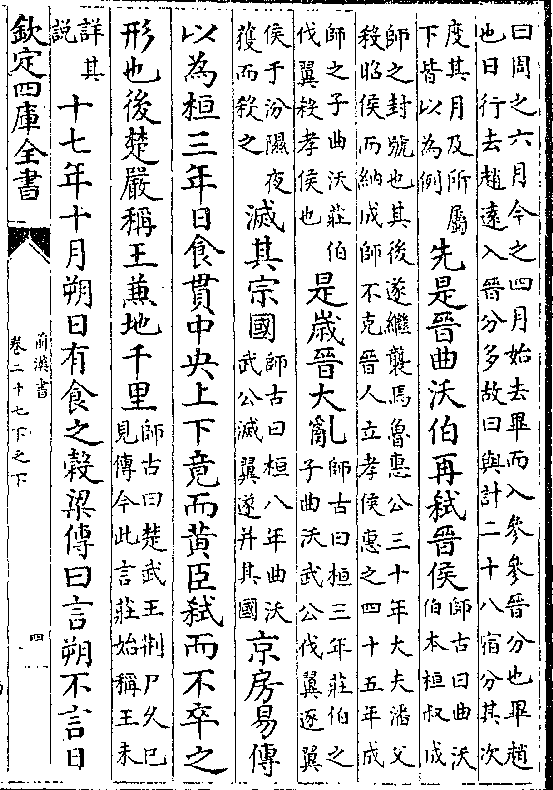 曰周之六月今之四月始去畢而入參參晉分也畢趙
也日行去趙遠入晉分多故曰與計二十八宿分其次
度其月及所屬
下皆以為例
先是晉曲沃伯再弒晉侯
師古曰曲沃
伯本桓叔成
師之封號也其後遂繼襲焉魯惠公三十年大夫潘父
殺昭侯而納成師不克晉人立孝侯惠之四十五年成
師之子曲沃莊伯
伐翼殺孝侯也
是歲晉大亂
師古曰桓三年莊伯之
子曲沃武公伐翼逐翼
侯于汾隰夜
獲而殺之
滅其宗國
師古曰桓八年曲沃
武公滅翼遂并其國
京房易傳
以為桓三年日食貫中央上下竟而黃臣弒而不卒之
形也後楚嚴稱王兼地千里
師古曰楚武王荆尸久已
見傳今此言莊始稱王未
詳其
說
十七年十月朔日有食之穀梁傳曰言朔不言日
欽定四庫全書
前漢書
卷二十七下之下
四